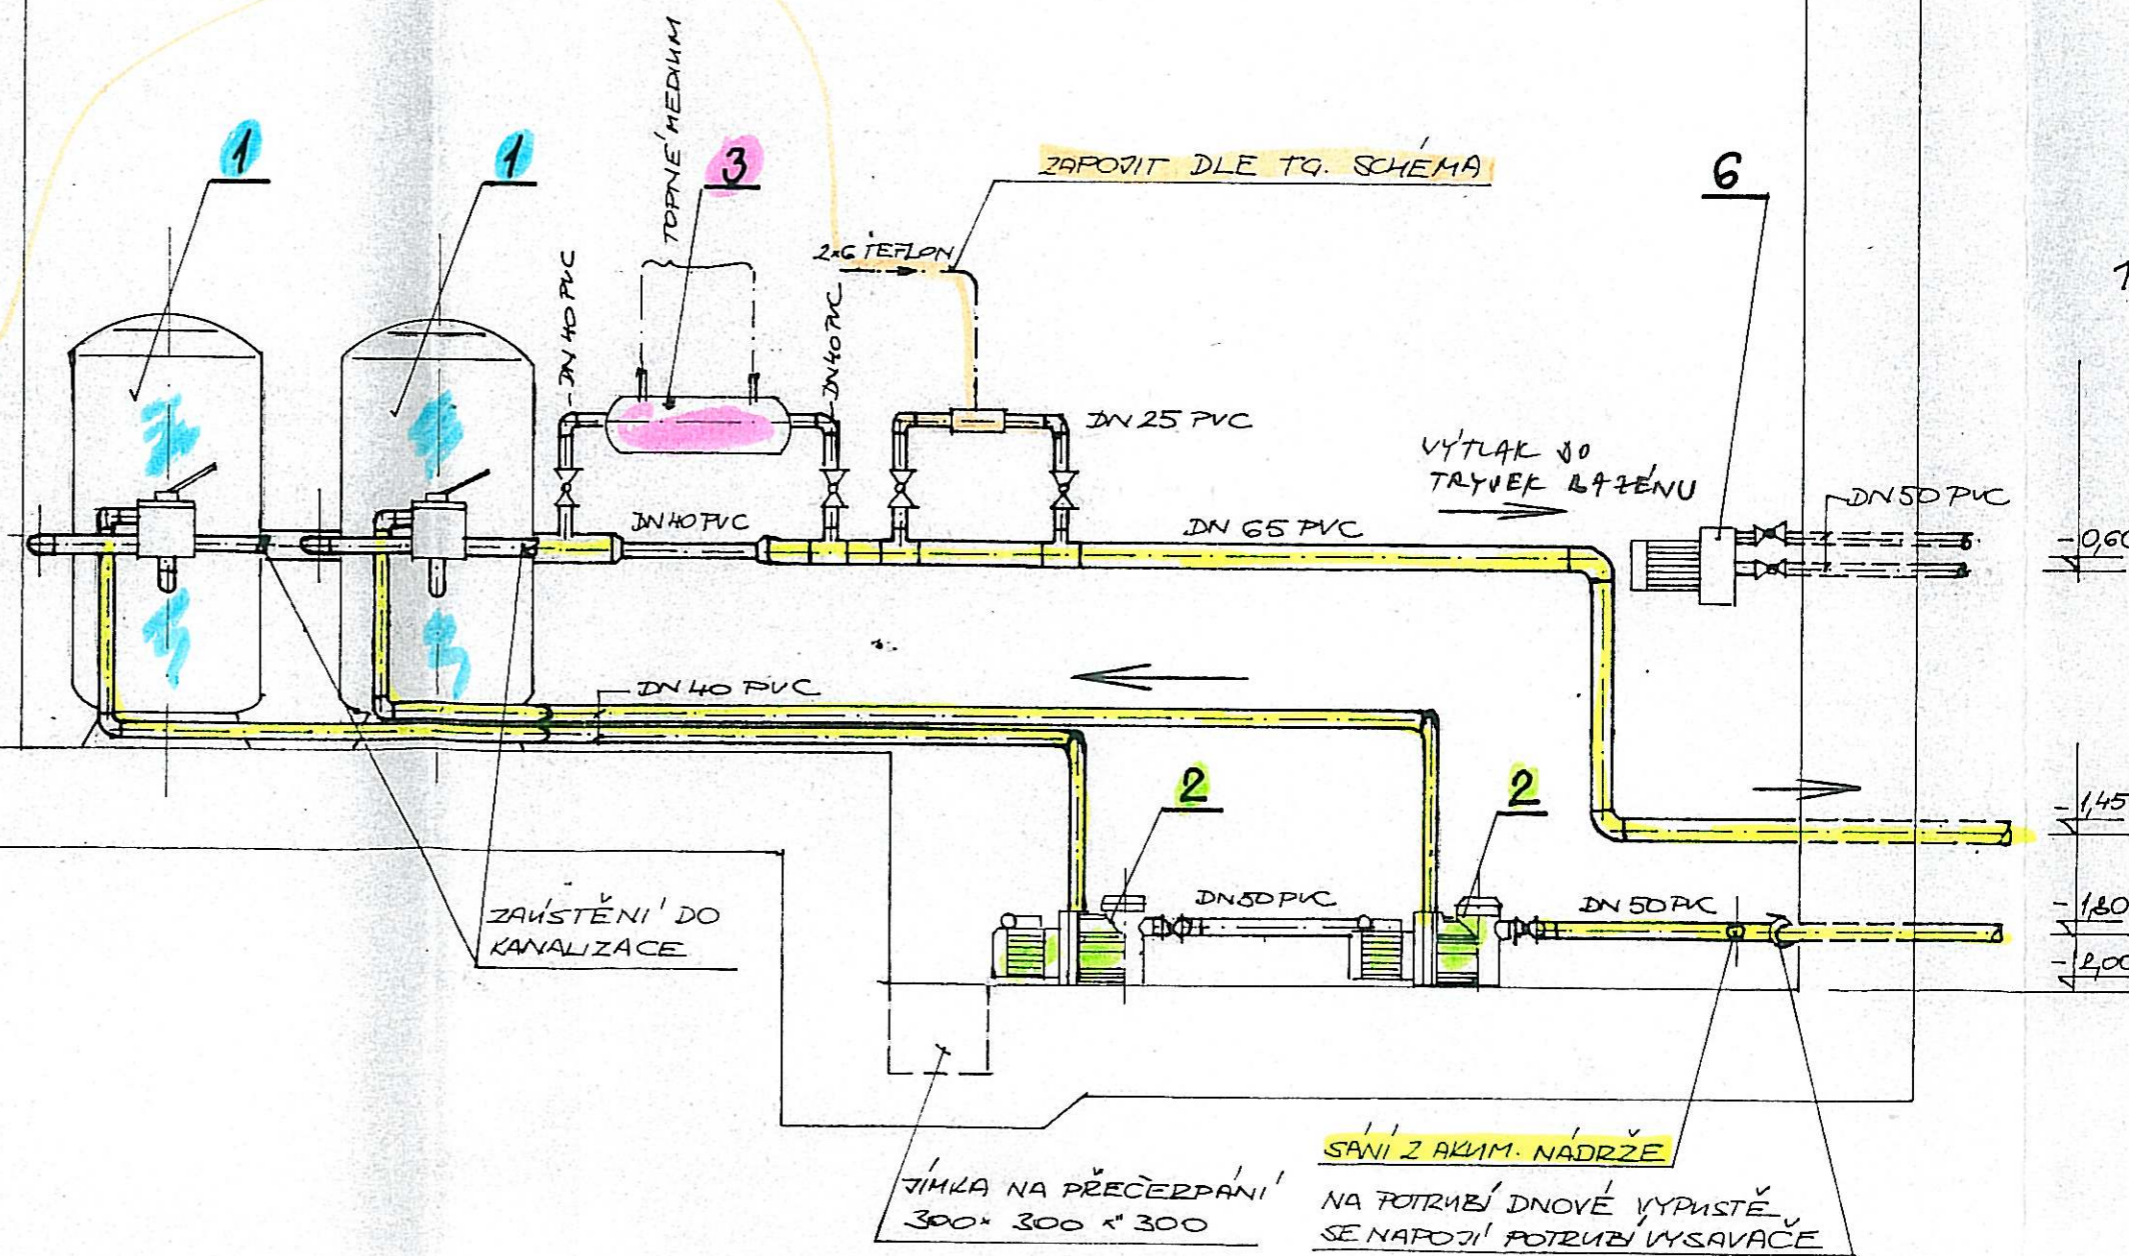 1
1
TOPNÉ MEDIUM
3
ZAPOJIT DLE TG. SCHÉMA
6
DN 40 PVC
2×6 TEFLON
DN 40 PVC
DN 25 PVC
VÝTLAK DO
TRYSEK BAZÉNU
DN 50 PVC
DN 40 PVC
DN 65 PVC
-0,60
DN 40 PVC
2
2
-1,45
ZAÚSTĚNÍ DO
KANALIZACE
DN50 PVC
DN 50 PVC
-1,80
-2,00
SÁNÍ Z AKUM. NÁDRŽE
JÍMKA NA PŘEČERPÁNÍ
300× 300 × 300
NA POTRUBÍ DNOVÉ VÝPUSTĚ
SE NAPOJÍ POTRUBÍ VYSAVAČE